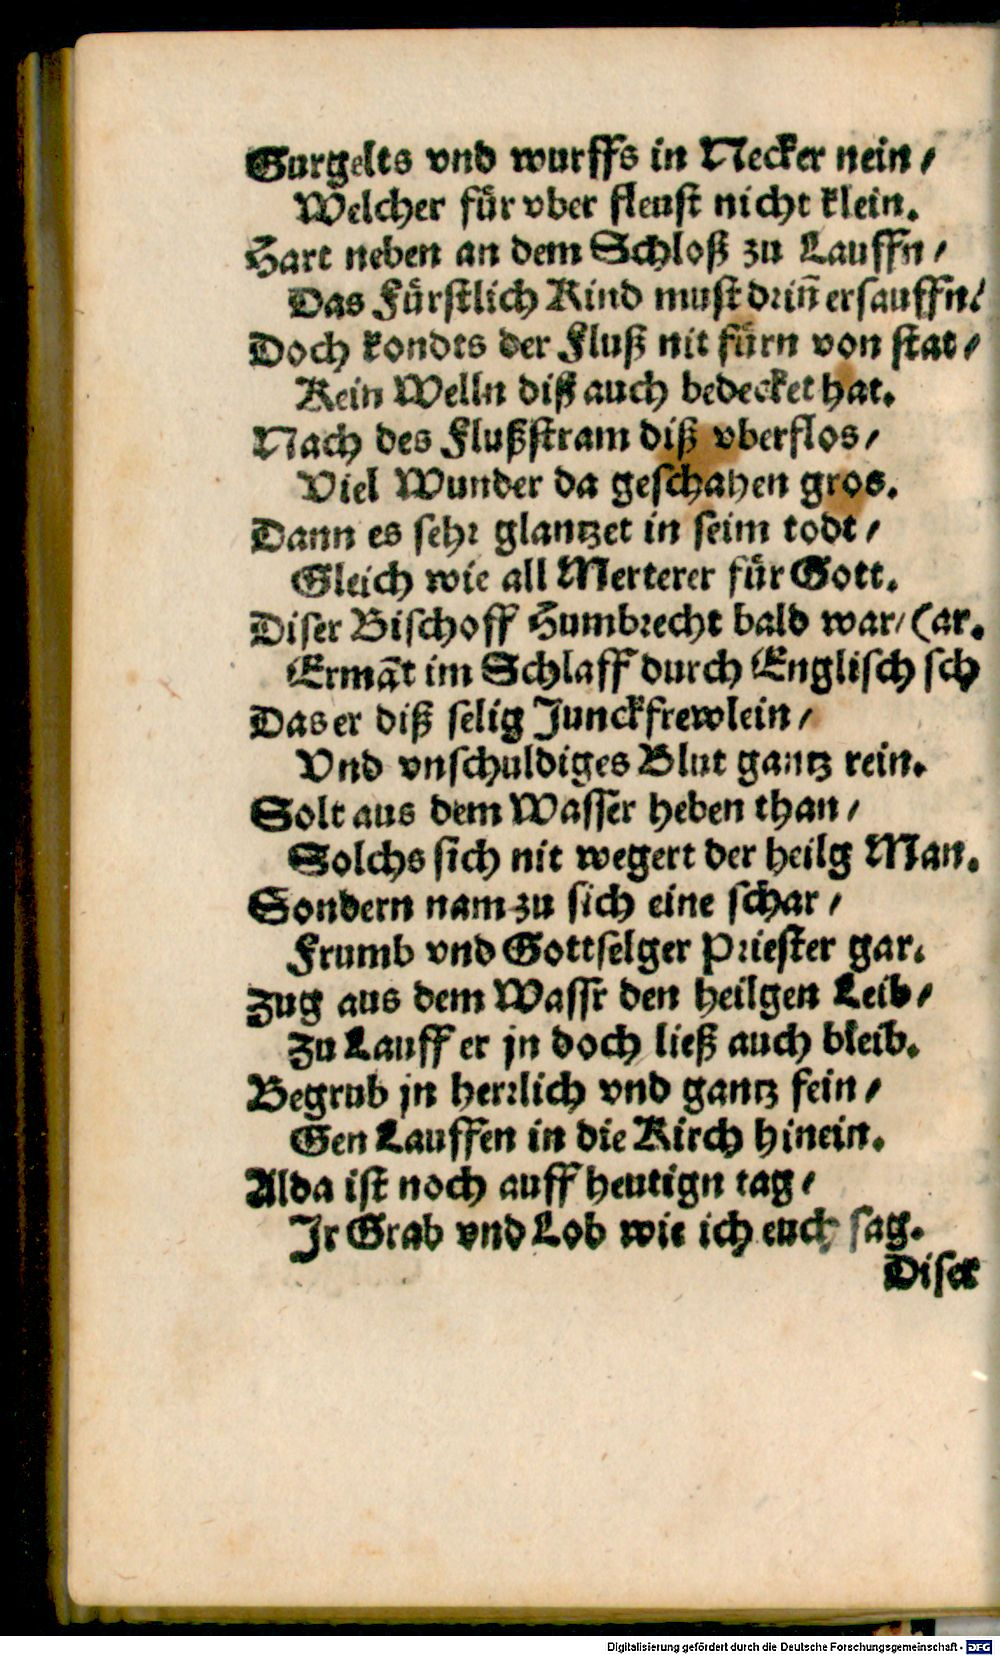 Gurgelts vnd wurffs in Necker nein /
Welcher für vber fleust nicht klein.
Hart neben an dem Schloß zu Lauffn /
Das Fürstlich Kind must drin̄ ersauffn /
Doch kondts der Fluß nit fürn von stat /
Kein Welln diß auch bedecket hat.
Nach des Flußstram diß vberflos /
Viel Wunder da geschahen gros.
Dann es sehr glantzet in seim todt /
Gleich wie all Merterer für Gott.
Diser Bischoff Humbrecht bald war / (ar.
Ermāt im Schlaff durch Englisch sch
Das er diß selig Junckfrewlein /
Vnd vnschuldiges Blut gantz rein.
Solt aus dem Wasser heben than /
Solchs sich nit wegert der heilg Man.
Sondern nam zu sich eine schar /
Frumb vnd Gottselger Priester gar.
Zug aus dem Wassr den heilgen Leib /
Zu Lauff er jn doch ließ auch bleib.
Begrub jn herrlich vnd gantz fein /
Gen Lauffen in die Kirch hinein.
Alda ist noch auff heutign tag /
Jr Grab vnd Lob wie ich euch sag.
Diser
Digitalisierung gefördert durch die Deutsche Forschungsgemeinschaft - DFG